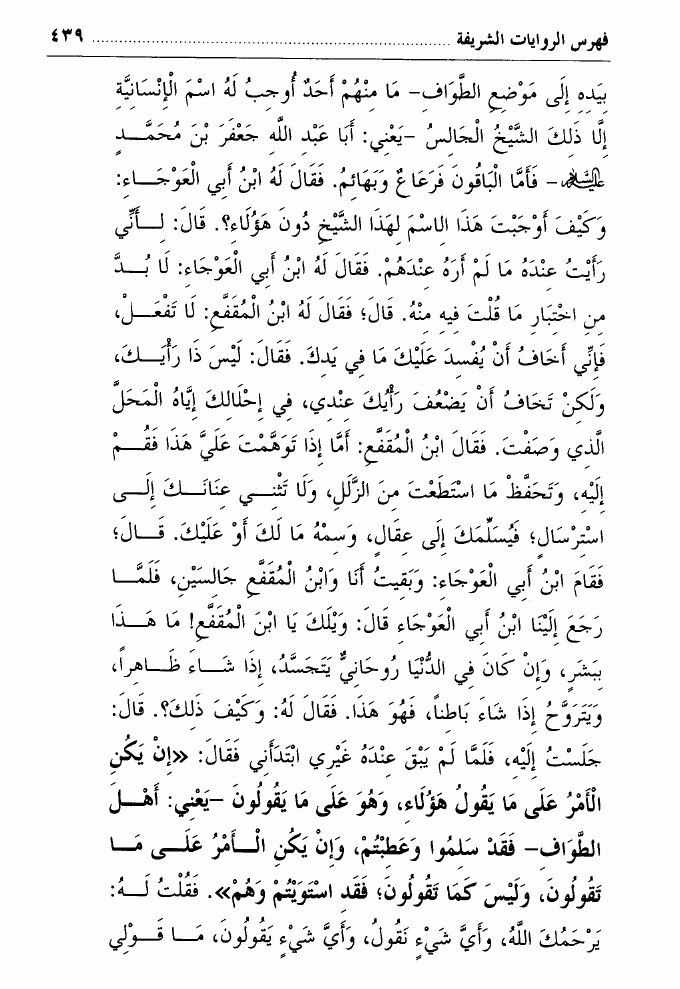 فهرس الروايات الشريفة ........................................ ٤٣٩
بِيَدِهِ إِلَى مَوْضِعِ الطَّوَافِ- مَا مِنْهُمْ أَحَدٌ أُوجِبُ لَهُ اسْمَ الْإِنْسَانِيَّةِ
إِلَّا ذَلِكَ الشَّيْخُ الْجَالِسُ -يَعْنِي: أَبَا عَبْدِ اللَّهِ جَعْفَرَ بْنَ مُحَمَّدٍ
عليه السلام- فَأَمَّا الْبَاقُونَ فَرَعَاعٌ وَبَهَائِمُ. فَقَالَ لَهُ ابْنُ أَبِي الْعَوْجَاءِ:
وَكَيْفَ أَوْجَبْتَ هَذَا الِاسْمَ لِهَذَا الشَّيْخِ دُونَ هَؤُلَاءِ؟. قَالَ: لِأَنِّي
رَأَيْتُ عِنْدَهُ مَا لَمْ أَرَهُ عِنْدَهُمْ. فَقَالَ لَهُ ابْنُ أَبِي الْعَوْجَاءِ: لَا بُدَّ
مِنِ اخْتِبَارِ مَا قُلْتَ فِيهِ مِنْهُ. قَالَ؛ فَقَالَ لَهُ ابْنُ الْمُقَفَّعِ: لَا تَفْعَلْ،
فَإِنِّي أَخَافُ أَنْ يُفْسِدَ عَلَيْكَ مَا فِي يَدِكَ. فَقَالَ: لَيْسَ ذَا رَأْيَكَ،
وَلَكِنْ تَخَافُ أَنْ يَضْعُفَ رَأْيُكَ عِنْدِي، فِي إِحْلَالِكَ إِيَّاهُ الْمَحَلَّ
الَّذِي وَصَفْتَ. فَقَالَ ابْنُ الْمُقَفَّعِ: أَمَّا إِذَا تَوَهَّمْتَ عَلَيَّ هَذَا فَقُمْ
إِلَيْهِ، وَتَحَفَّظْ مَا اسْتَطَعْتَ مِنَ الزَّلَلِ، وَلَا تَثْنِي عِنَانَكَ إِلَى
اسْتِرْسَالٍ؛ فَيُسَلِّمَكَ إِلَى عِقَالٍ، وَسِمْهُ مَا لَكَ أَوْ عَلَيْكَ. قَالَ؛
فَقَامَ ابْنُ أَبِي الْعَوْجَاءِ: وَبَقِيتُ أَنَا وَابْنُ الْمُقَفَّعِ جَالِسَيْنِ، فَلَمَّا
رَجَعَ إِلَيْنَا ابْنُ أَبِي الْعَوْجَاءِ قَالَ: وَيْلَكَ يَا ابْنَ الْمُقَفَّعِ! مَا هَذَا
بِبَشَرٍ، وَإِنْ كَانَ فِي الدُّنْيَا رُوحَانِيٌّ يَتَجَسَّدُ، إِذَا شَاءَ ظَاهِراً،
وَيَتَرَوَّحُ إِذَا شَاءَ بَاطِناً، فَهُوَ هَذَا. فَقَالَ لَهُ: وَكَيْفَ ذَلِكَ؟. قَالَ:
جَلَسْتُ إِلَيْهِ، فَلَمَّا لَمْ يَبْقَ عِنْدَهُ غَيْرِي ابْتَدَأَنِي فَقَالَ: «إِنْ يَكُنِ
الْأَمْرُ عَلَى مَا يَقُولُ هَؤُلَاءِ، وَهُوَ عَلَى مَا يَقُولُونَ -يَعْنِي: أَهْلَ
الطَّوَافِ- فَقَدْ سَلِمُوا وَعَطِبْتُمْ، وَإِنْ يَكُنِ الْأَمْرُ عَلَى مَا
تَقُولُونَ، وَلَيْسَ كَمَا تَقُولُونَ؛ فَقَدِ اسْتَوَيْتُمْ وَهُمْ». فَقُلْتُ لَهُ:
يَرْحَمُكَ اللَّهُ، وَأَيَّ شَيْءٍ نَقُولُ، وَأَيَّ شَيْءٍ يَقُولُونَ، مَا قَوْلِي